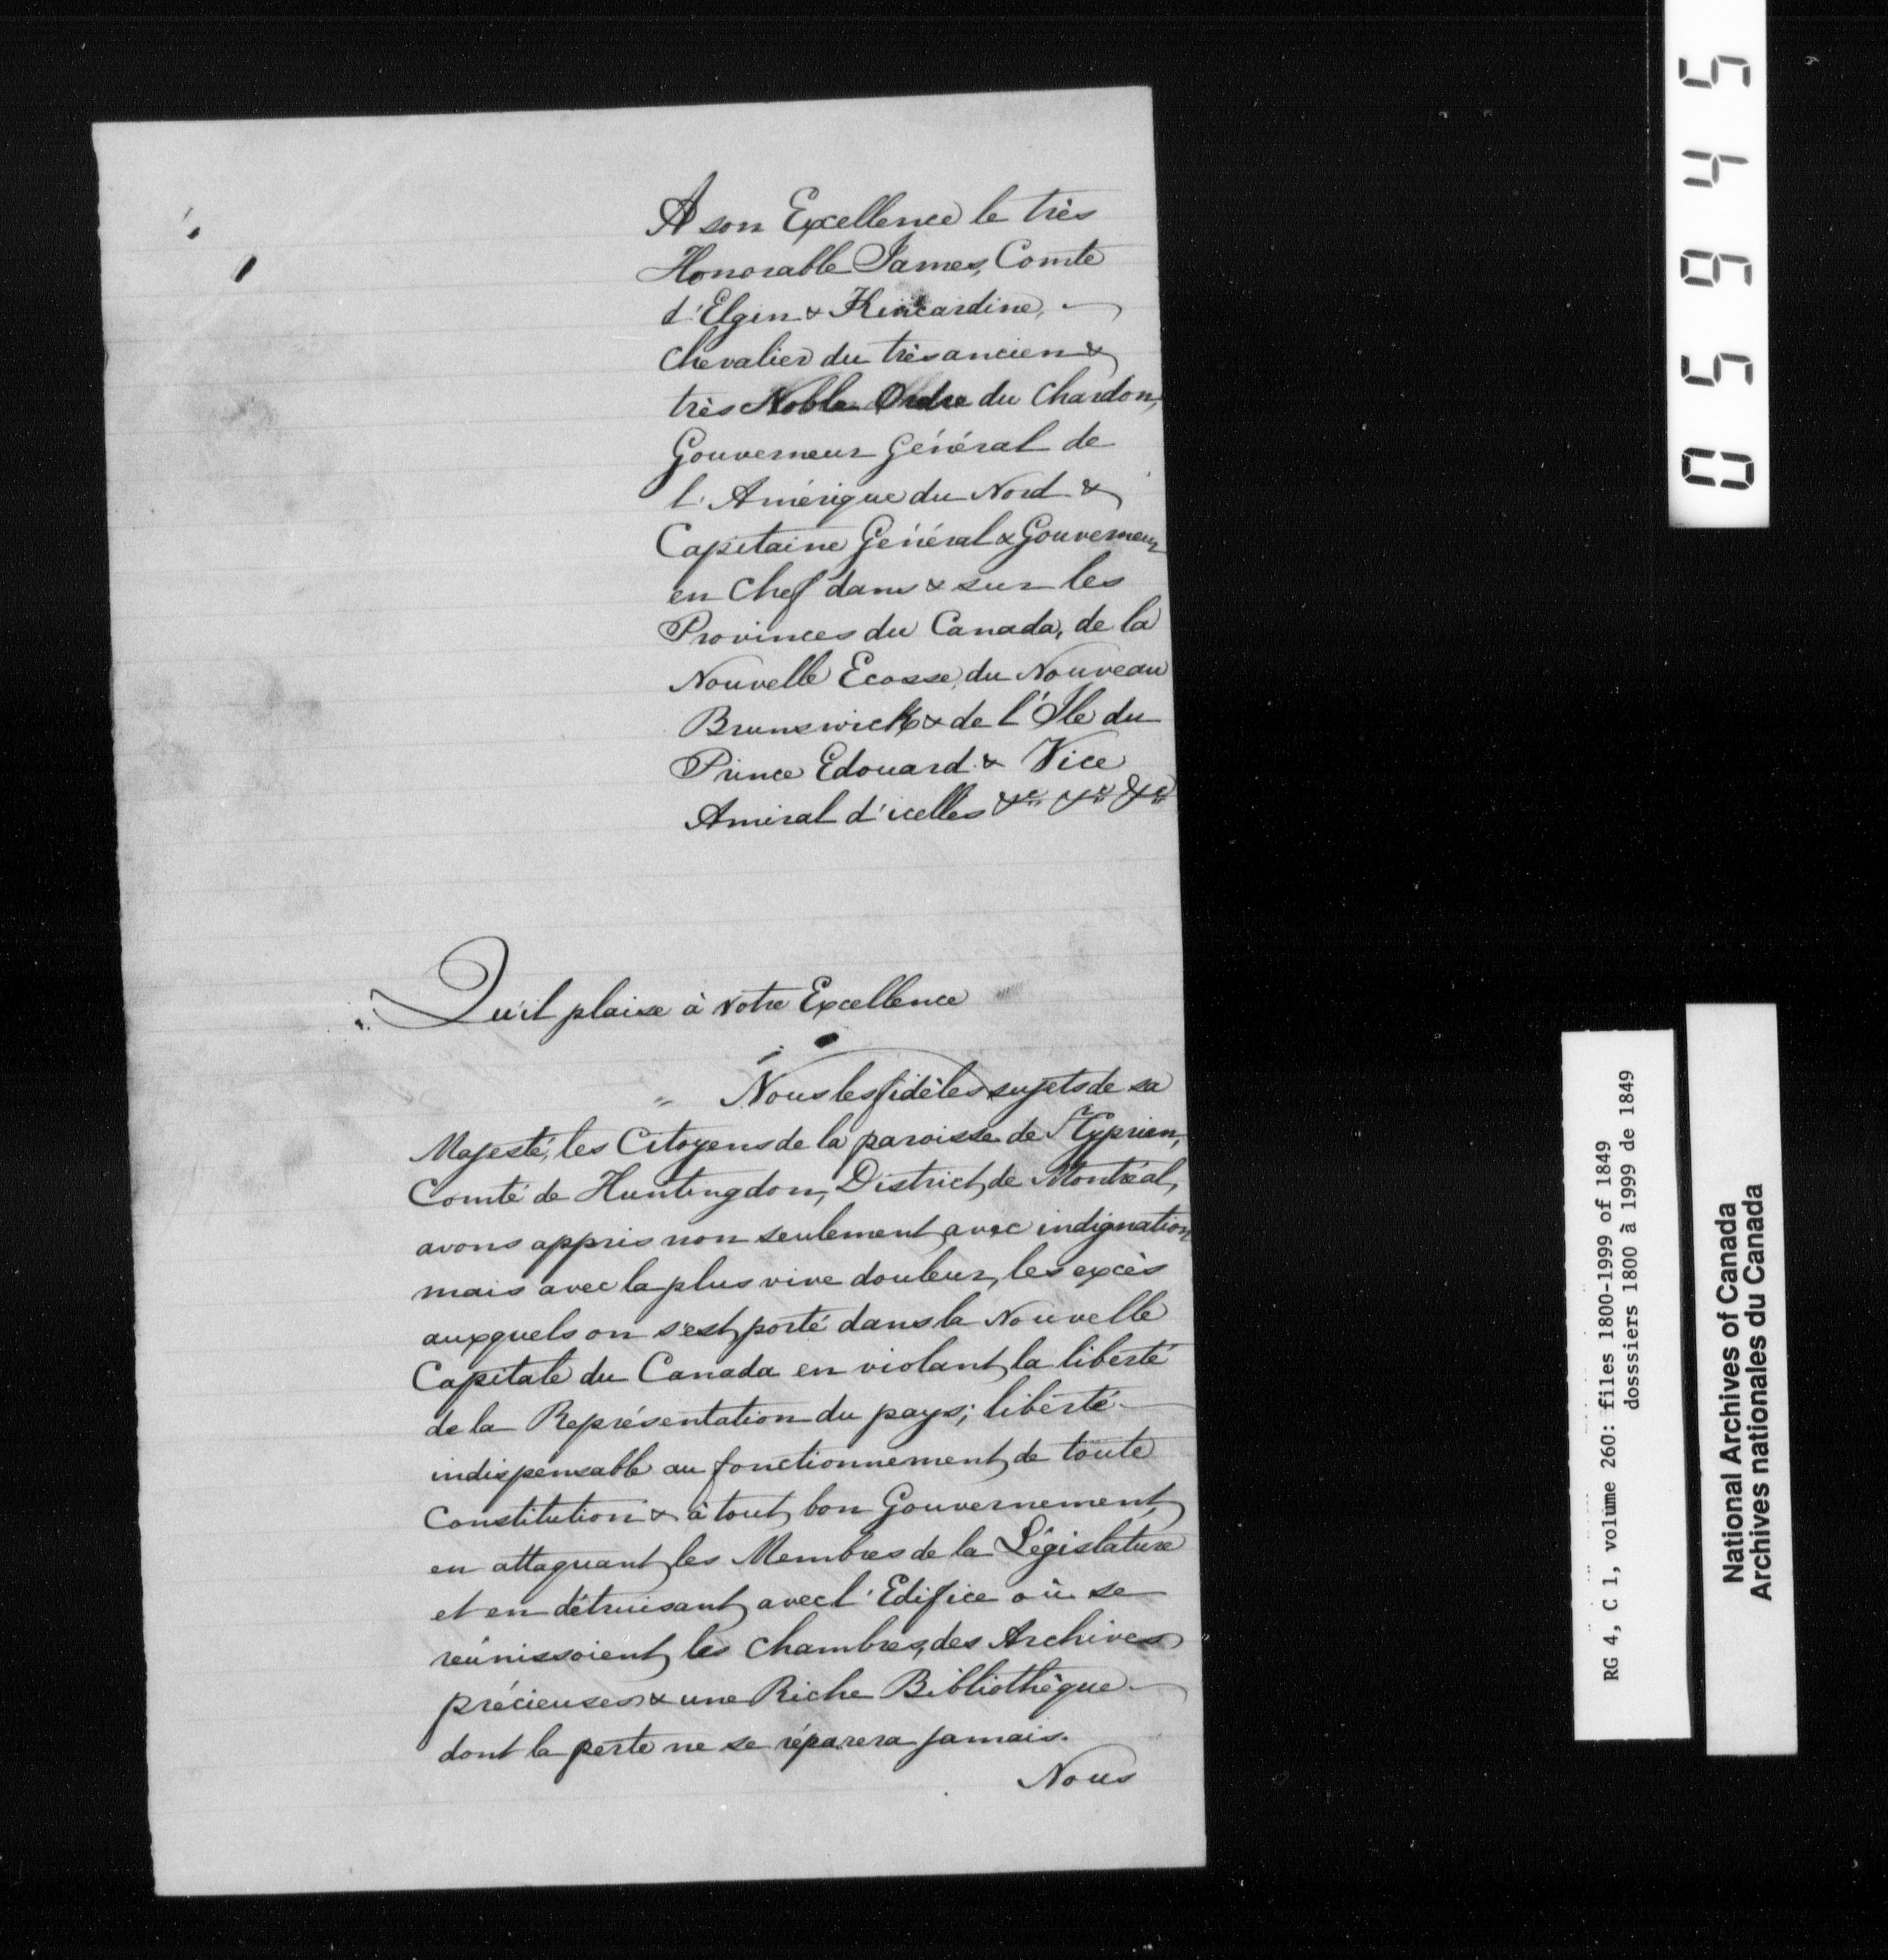 A son Excellence le très
Honorable James, Comte
d'Elgin & Kincardine,
Chevalier du très ancien &
très Noble Ordre du Chardon,
Gouverneur Général de
l'Amérique du Nord &
Capitaine Général & Gouverneur
en Chef dans & sur les
Provinces du Canada, de la
Nouvelle Ecosse, du Nouveau
Brunswick & de l'Ile du
Prince Edouard & Vice
Amiral d'icelles &c &c &c
Qu'il plaise à votre Excellence
Nous les fidèles sujets de sa
Majesté, les Citoyens de la paroisse de St Cyprien,
Comté de Huntingdon, District de Montréal,
avons appris non seulement avec indignation
mais avec la plus vive douleur, les excès
auxquels on s'est porté dans la Nouvelle
Capitale du Canada en violant la liberté
de la Représentation du pays; liberté
indispensable au fonctionnement de toute
Constitution & à tout bon Gouvernement,
en attaquant les Membres de la Législature
et en détruisant avec l'Edifice où se
réunissoient les Chambres, des Archives
précieuses & une Riche Bibliothèque
dont la perte ne se réparera jamais.
Nous
05945
RG 4, C 1, volume 260: files 1800-1999 of 1849
dosssiers 1800 à 1999 de 1849
National Archives of Canada
Archives nationales du Canada